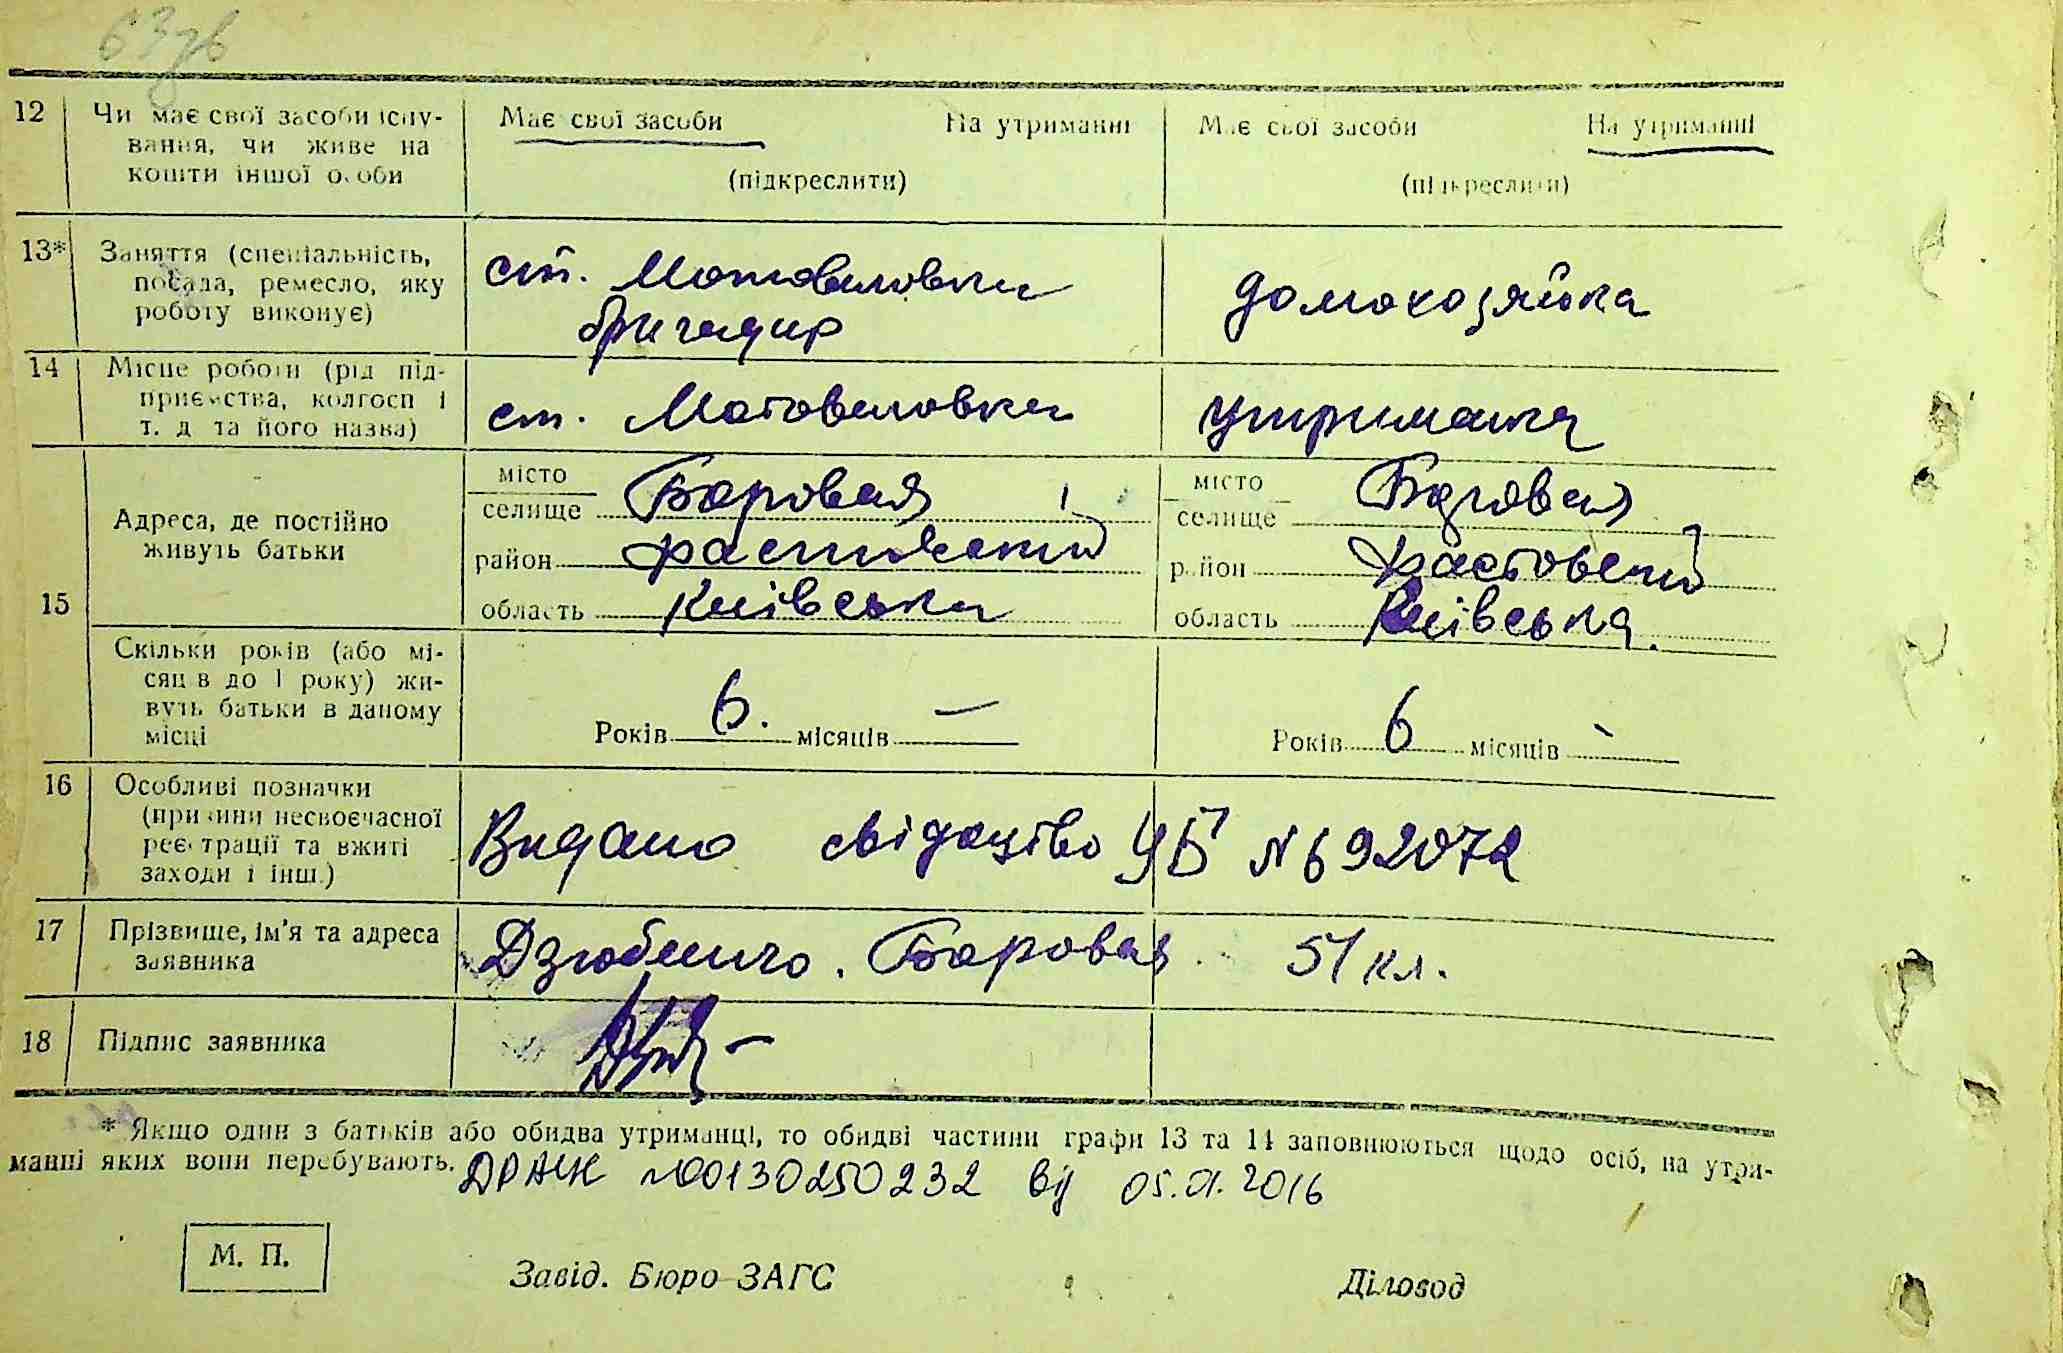 12 Чи має свої засоби існу- Має свої засоби На утриманні Має свої засоби На утриманні
вання, чи живе на
кошти іншої особи (підкреслити) (підкреслити)
13* Заняття (спеціальність, ст. Мотовиловка домохозяйка
посада, ремесло, яку бригадир
роботу виконує)
14 Місце роботи (рід під-
приємства, колгосп і ст. Мотовиловка утриманка
т. д та його назва)
місто місто
селище Боровая селище Боровая
Адреса, де постійно
живуть батьки район Фастовский район Фастовский
15 область Київська область Київська.
Скільки років (або мі-
сяців до 1 року) жи-
вуть батьки в даному Років 6. місяців — Років 6 місяців -
місці
16 Особливі позначки
(причини несвоєчасної
реєстрації та вжиті Видано свідоцтво УБ № 692072
заходи і інш.)
17 Прізвище, ім'я та адреса Дзюбенко. Боровая 51 кл.
заявника
18 Підпис заявника
* Якщо один з батьків або обидва утриманці, то обидві частини графи 13 та 14 заповнюються щодо осіб, на утри-
манні яких вони перебувають. ДРАЦС №00130250232 від 05.01.2016
М. П. Завід. Бюро ЗАГС Діловод